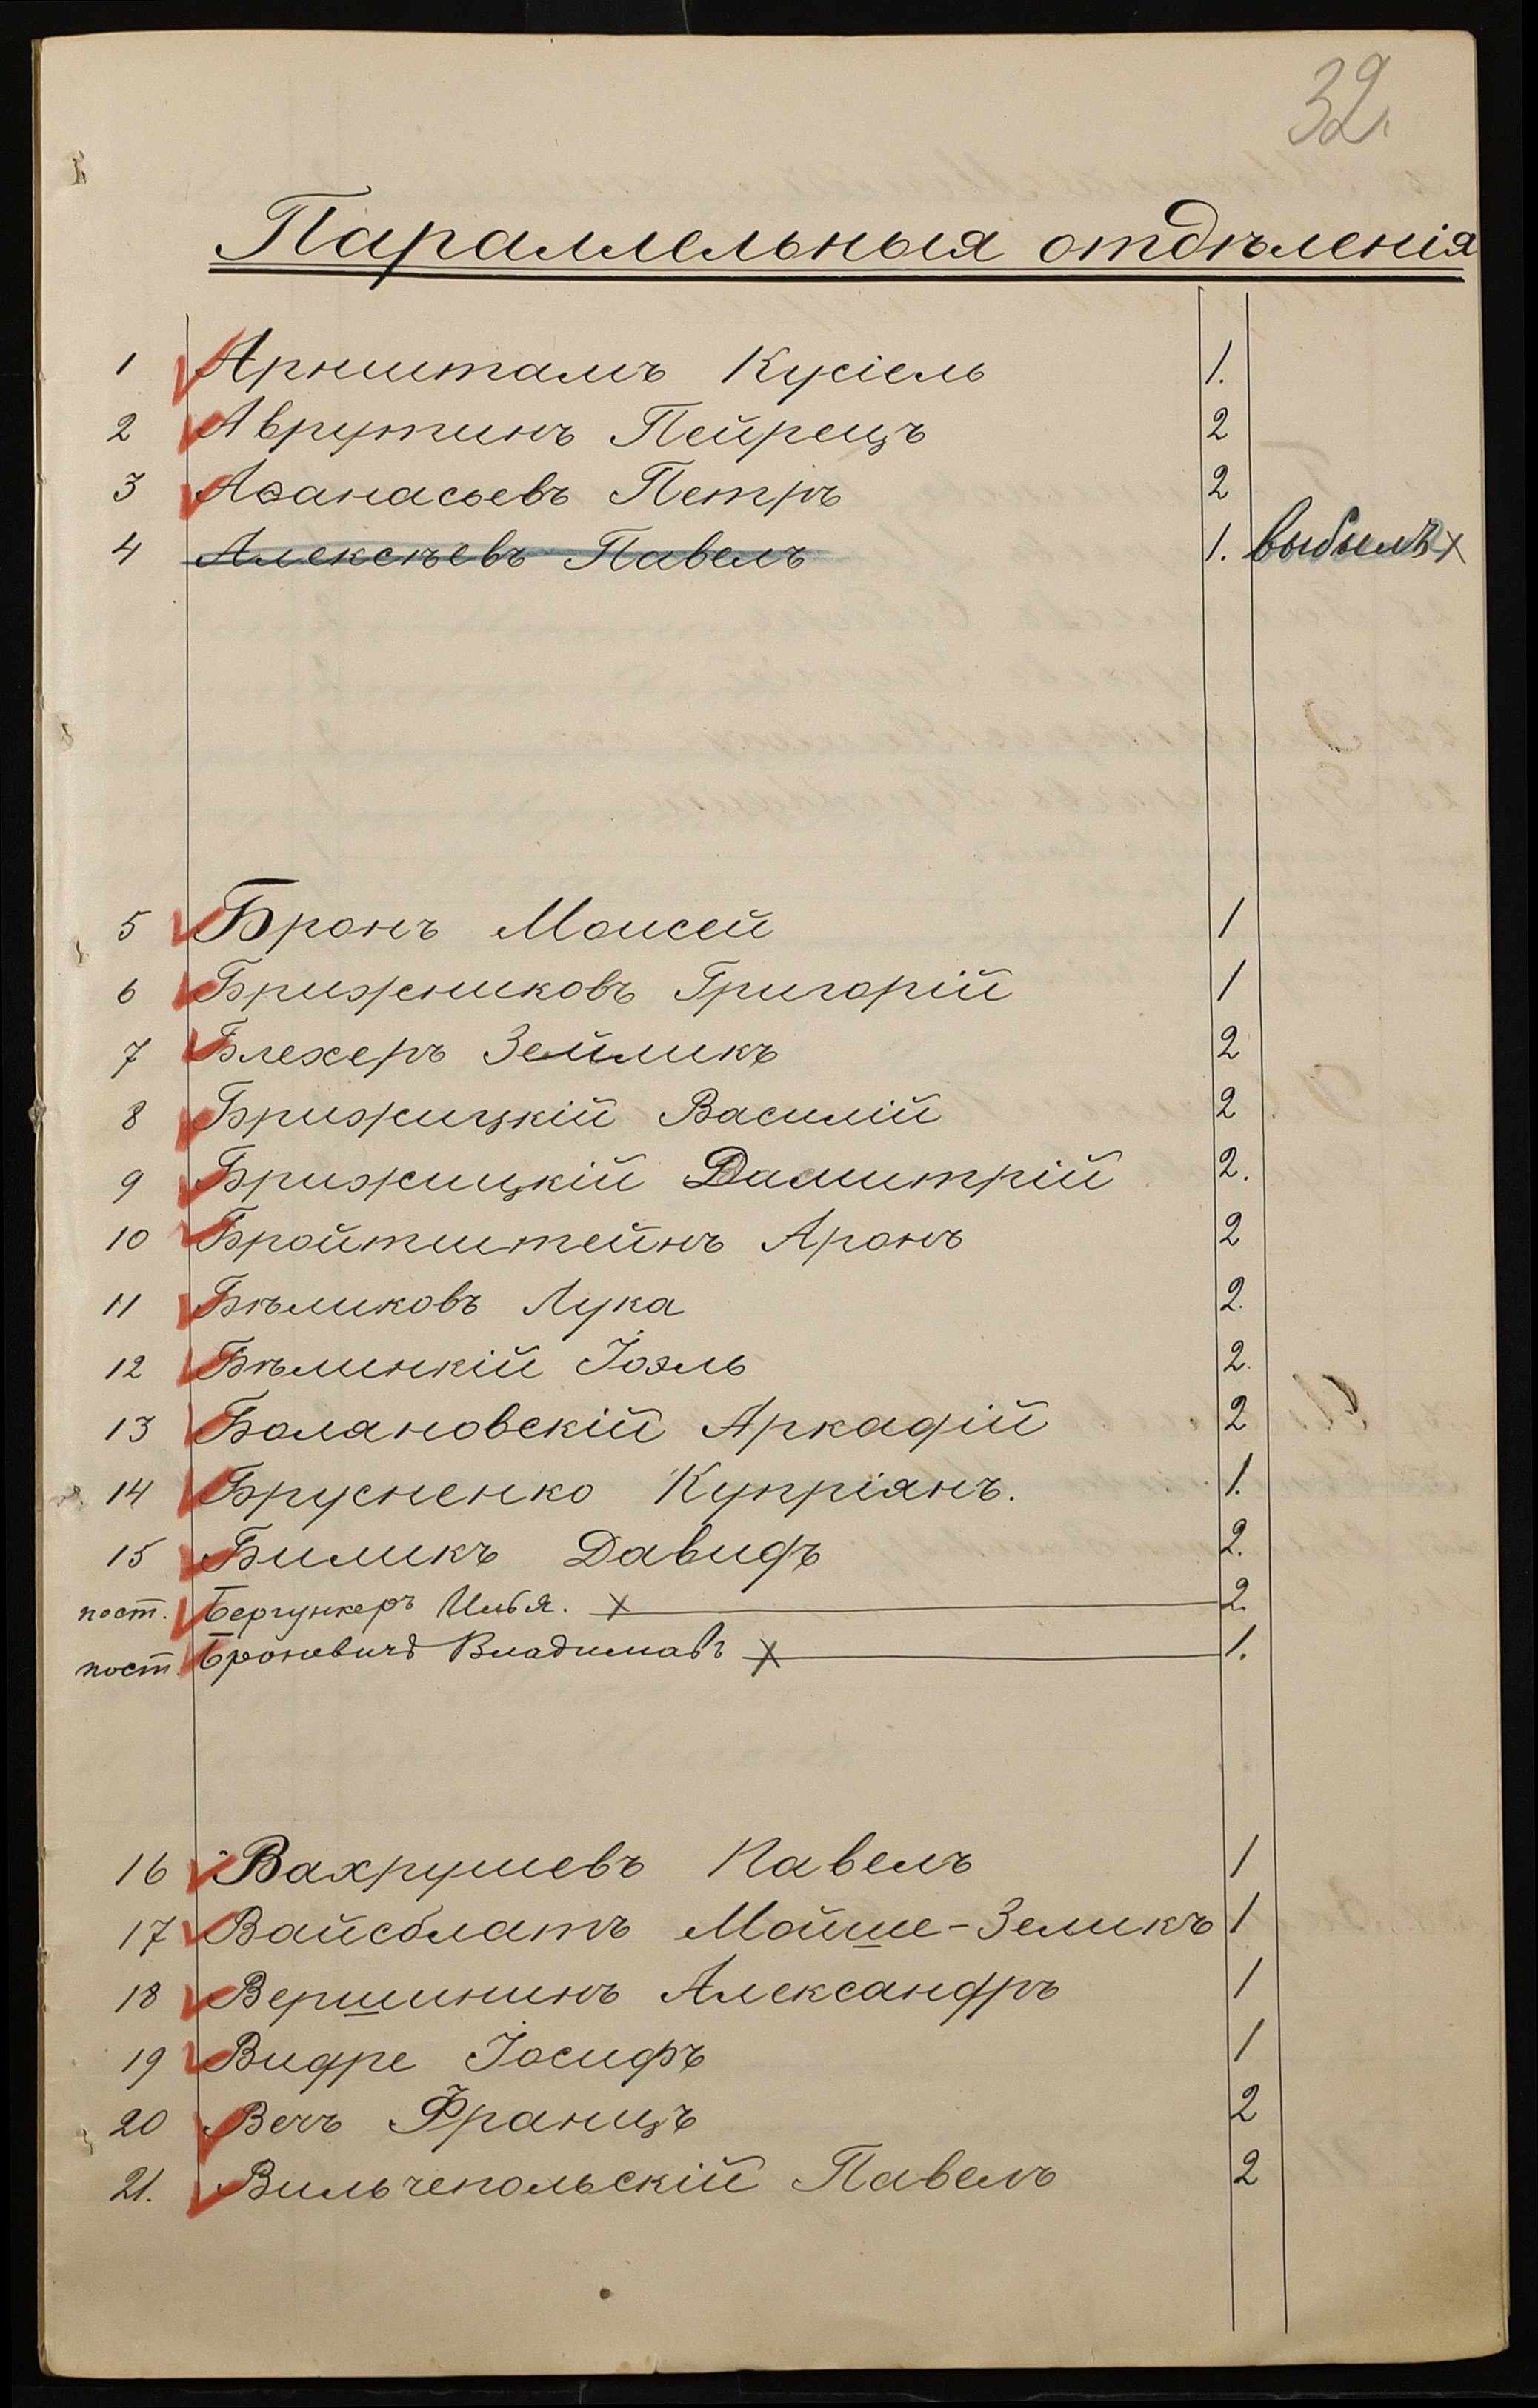 32.
Параллельныя отдѣленія
1 Арнштамъ Кусіель 1.
2 Аврутинъ Пейрецъ 2
3 Аѳанасьевъ Петръ 2
4 Алексѣевъ Павелъ 1. выбылъ х
5 Бронъ Моисей 1
6 Брижниковъ Григорій 1
7 Блехеръ Зейликъ 2
8 Брижицкій Василій 2
9 Брижицкій Дамитрій 2.
10 Бройтштейнъ Аронъ 2
11 Бѣликовъ Лука 2.
12 Бѣлинкій Іоэль 2.
13 Болановскій Аркадій 2
14 Брусненко Купріянъ. 1.
15 Биликъ Давидъ 2.
пост. Бергункеръ Илья. х 2.
пост Броновичъ х 1.
16 Вахрушевъ Павелъ 1
17 Вайсблатъ Мойше-Зеликъ 1
18 Вершининъ Александръ 1
19 Видре Іосифъ 1
20 Вечъ Францъ 2
21. Вильчепольскій Павелъ 2